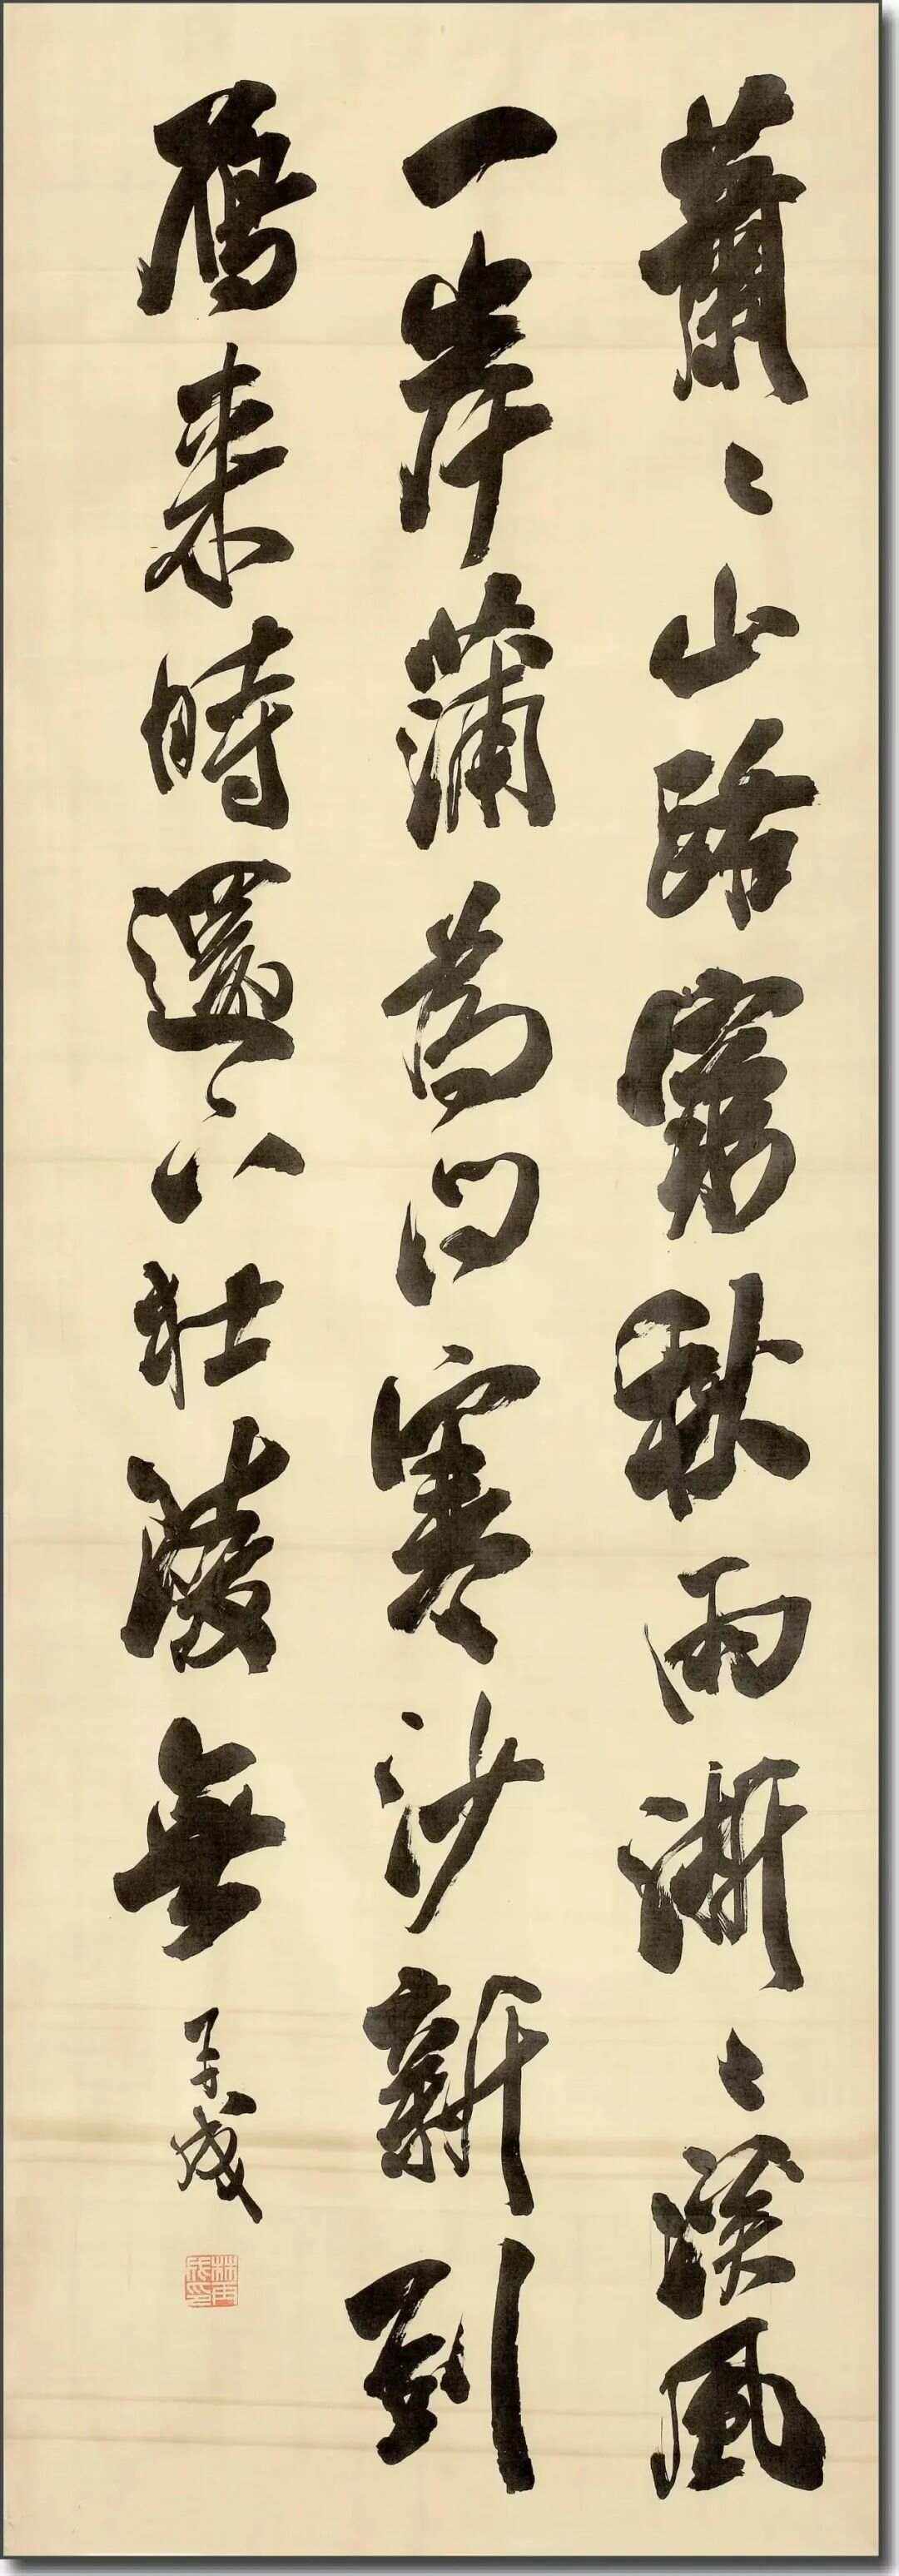 蕭々山路窮秋雨淅々溪風
一岸蒲為問寒沙新到
鴈来時還下杜陵無 成